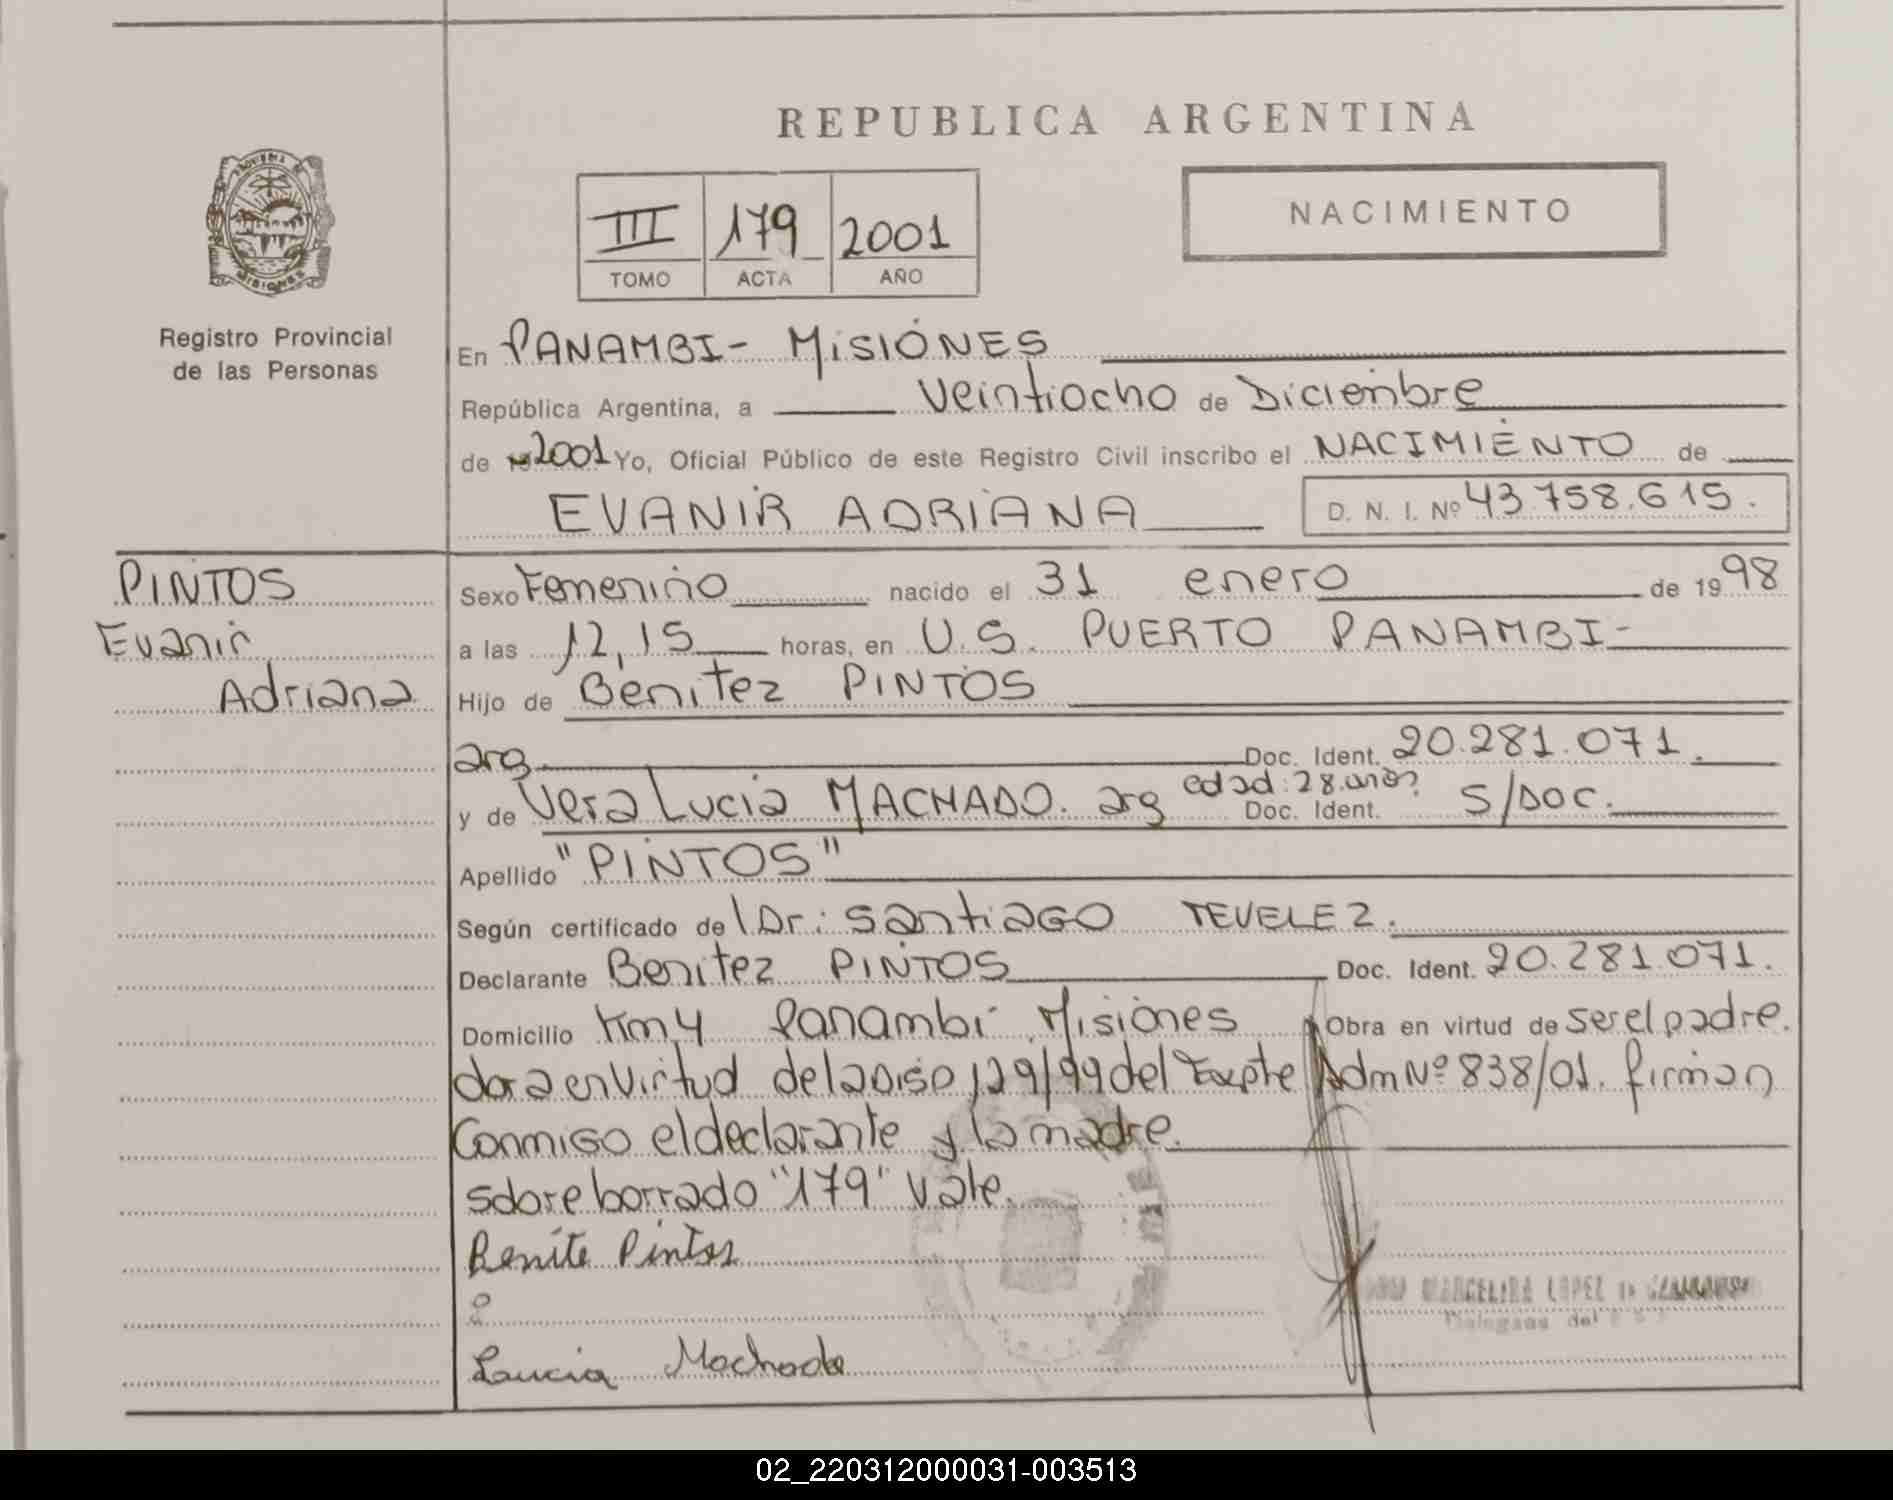 REPUBLICA ARGENTINA
III 179 2001
TOMO ACTA AÑO
NACIMIENTO
Registro Provincial
de las Personas
En PANAMBI - MiSIONES
República Argentina, a Veintiocho de Diciembre
de 2001 Yo, Oficial Público de este Registro Civil inscribo el NACIMIENTO de
EVANIR ADRIANA D. N. I. Nº 43.758.615.
PINTOS
Evanir
Adriana
Sexo Femenino nacido el 31 enero de 1998
a las 12,15 horas, en U.S. PUERTO PANAMBI-
Hijo de Benitez PINTOS
arg Doc. Ident. 20.281.071.
y de Vera Lucia MACHADO. arg edad: 28 años Doc. Ident. S/DOC.
Apellido "PINTOS"
Según certificado de l Dr: Santiago TEVELEZ.
Declarante Benitez PINTOS Doc. Ident. 20.281.071.
Domicilio Km 4 Panambi Misiones Obra en virtud de ser el padre.
en virtud de la Diso 129/99 del Expte Adm Nº 838/01. firman
Conmigo el declarante y la madre.
sobre borrado "179" Vale.
Benite Pintos
Laucia Machado
MARCELINA LOPEZ
02_220312000031-003513